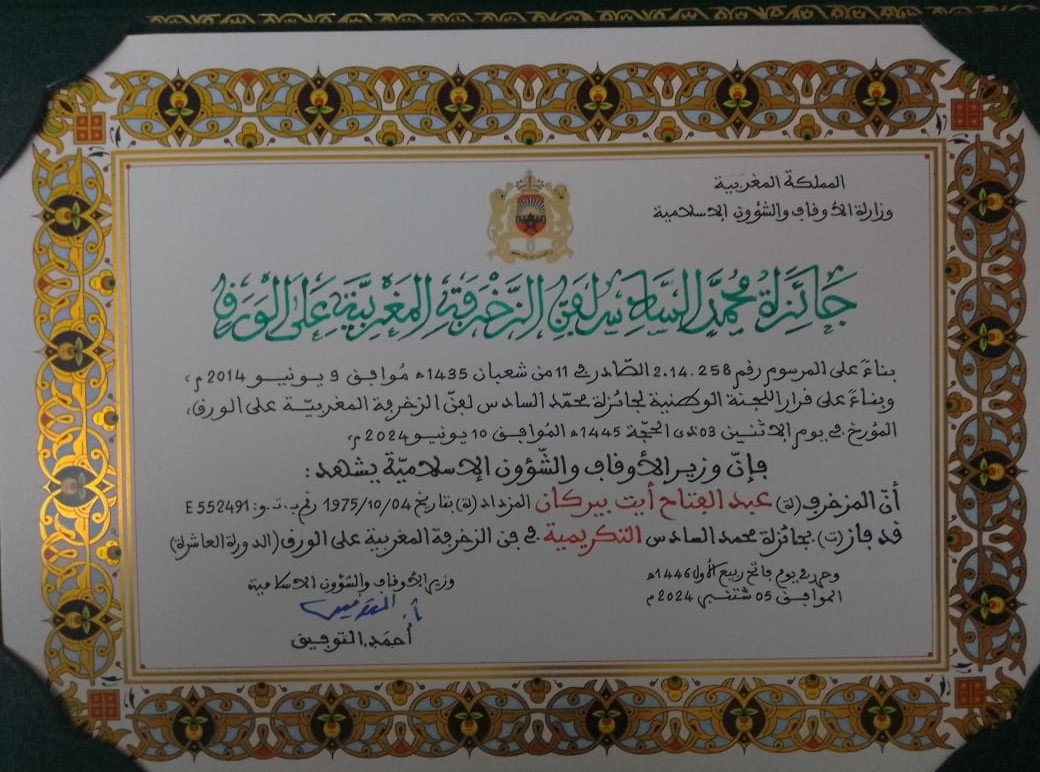 المملكة المغربية
وزارة الأوقاف والشؤون الإسلامية
جَائِزَة مُحمَّد السَّادِسِ لِفَنِّ الزَّخْرَفَةِ المَغْرِبِيَّةِ عَلَى الْوَرَقِ
بناءً على المرسوم رقم 2.14.258 الصّادر في 11 من شعبان 1435ه مُوافق 9 يونيو 2014م،
وبناءً على قرار اللجنة الوطنية لجائزة محمّد السادس لفنّ الزخرفة المغربيّة على الورق،
المؤرخ في يوم الاثنين 03 ذي الحجّة 1445ه المُوافق 10 يونيو 2024م،
فإنّ وزير الأوقاف والشّؤون الإسلاميّة يشهد:
أنّ المزخرف(ة) عبد الفتاح أيت بيركان المزداد(ة) بتاريخ 1975/10/04 رقم ب.ت.و: E 552491
قد فاز(ت) بجائزة محمد السادس التكريمية في فن الزخرفة المغربية على الورق (الدورة العاشرة)
وحرر في يوم فاتح ربيع الأول 1446ه
الموافق 05 شتنبر 2024م
وزير الأوقاف والشؤون الإسلامية
أحمَد التوفيق